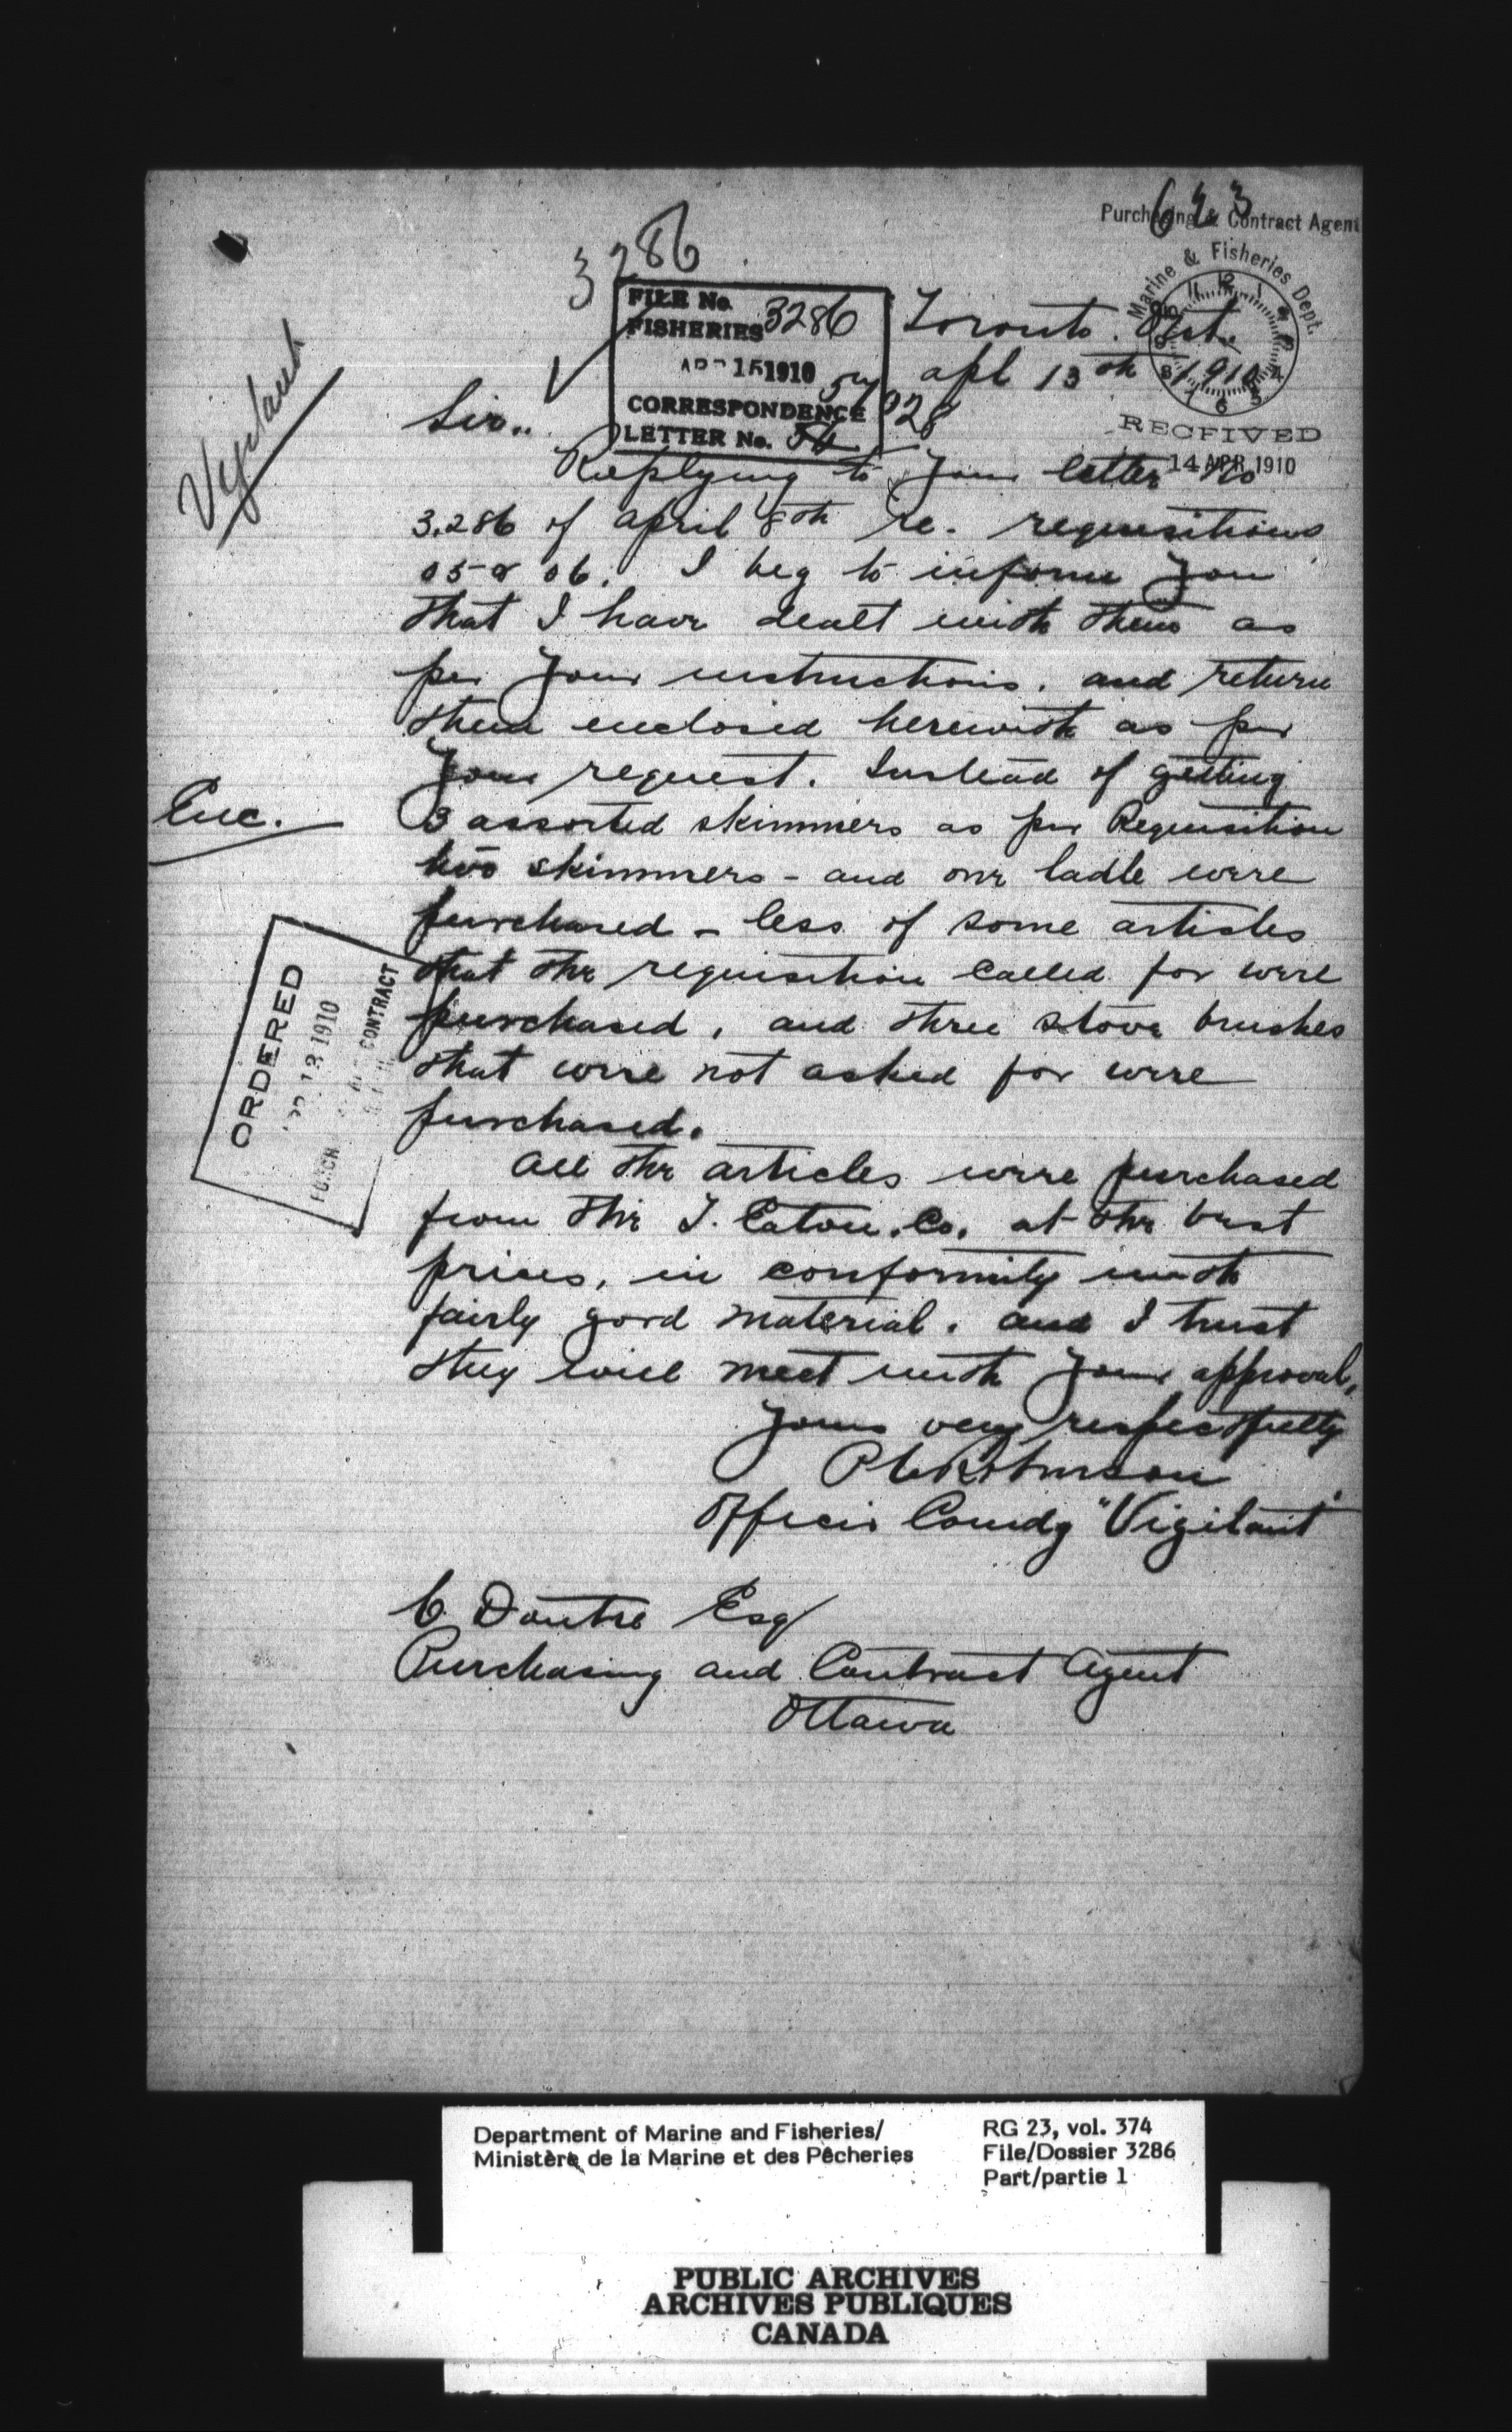 623
Purchasing & Contract Agent
Marine & Fisheries Dept.
RECEIVED
14 APR 1910
3286
FILE No.
FISHERIES 3286
APR 15 1910
CORRESPONDENCE
LETTER No. 54
57928
Vigilant
Toronto. Ont.
Apl 13th 1910
Sir..
Replying to your letter No
3.286 of April 8th re. requisitions
05 & 06. I beg to inform you
that I have dealt with them as
per your instructions. and return
them enclosed herewith as per
your request. Instead of getting
Enc.
3 assorted skimmers as per Requisition
two skimmers - and one ladle were
purchased - less of some articles
that the requisition called for were
purchased, and three stove brushes
that were not asked for were
purchased.
ORDERED
1910
CONTRACT
All the articles were purchased
from the T. Eaton. Co. at the best
prices, in conformity with
fairly good material. and I trust
they will meet with your approval.
Yours very respectfully
Robinson
Officer Comdg "Vigilant"
C. Doutre Esq
Purchasing and Contract Agent
Ottawa
Department of Marine and Fisheries/
Ministère de la Marine et des Pêcheries
RG 23, vol. 374
File/Dossier 3286
Part/partie 1
PUBLIC ARCHIVES
ARCHIVES PUBLIQUES
CANADA